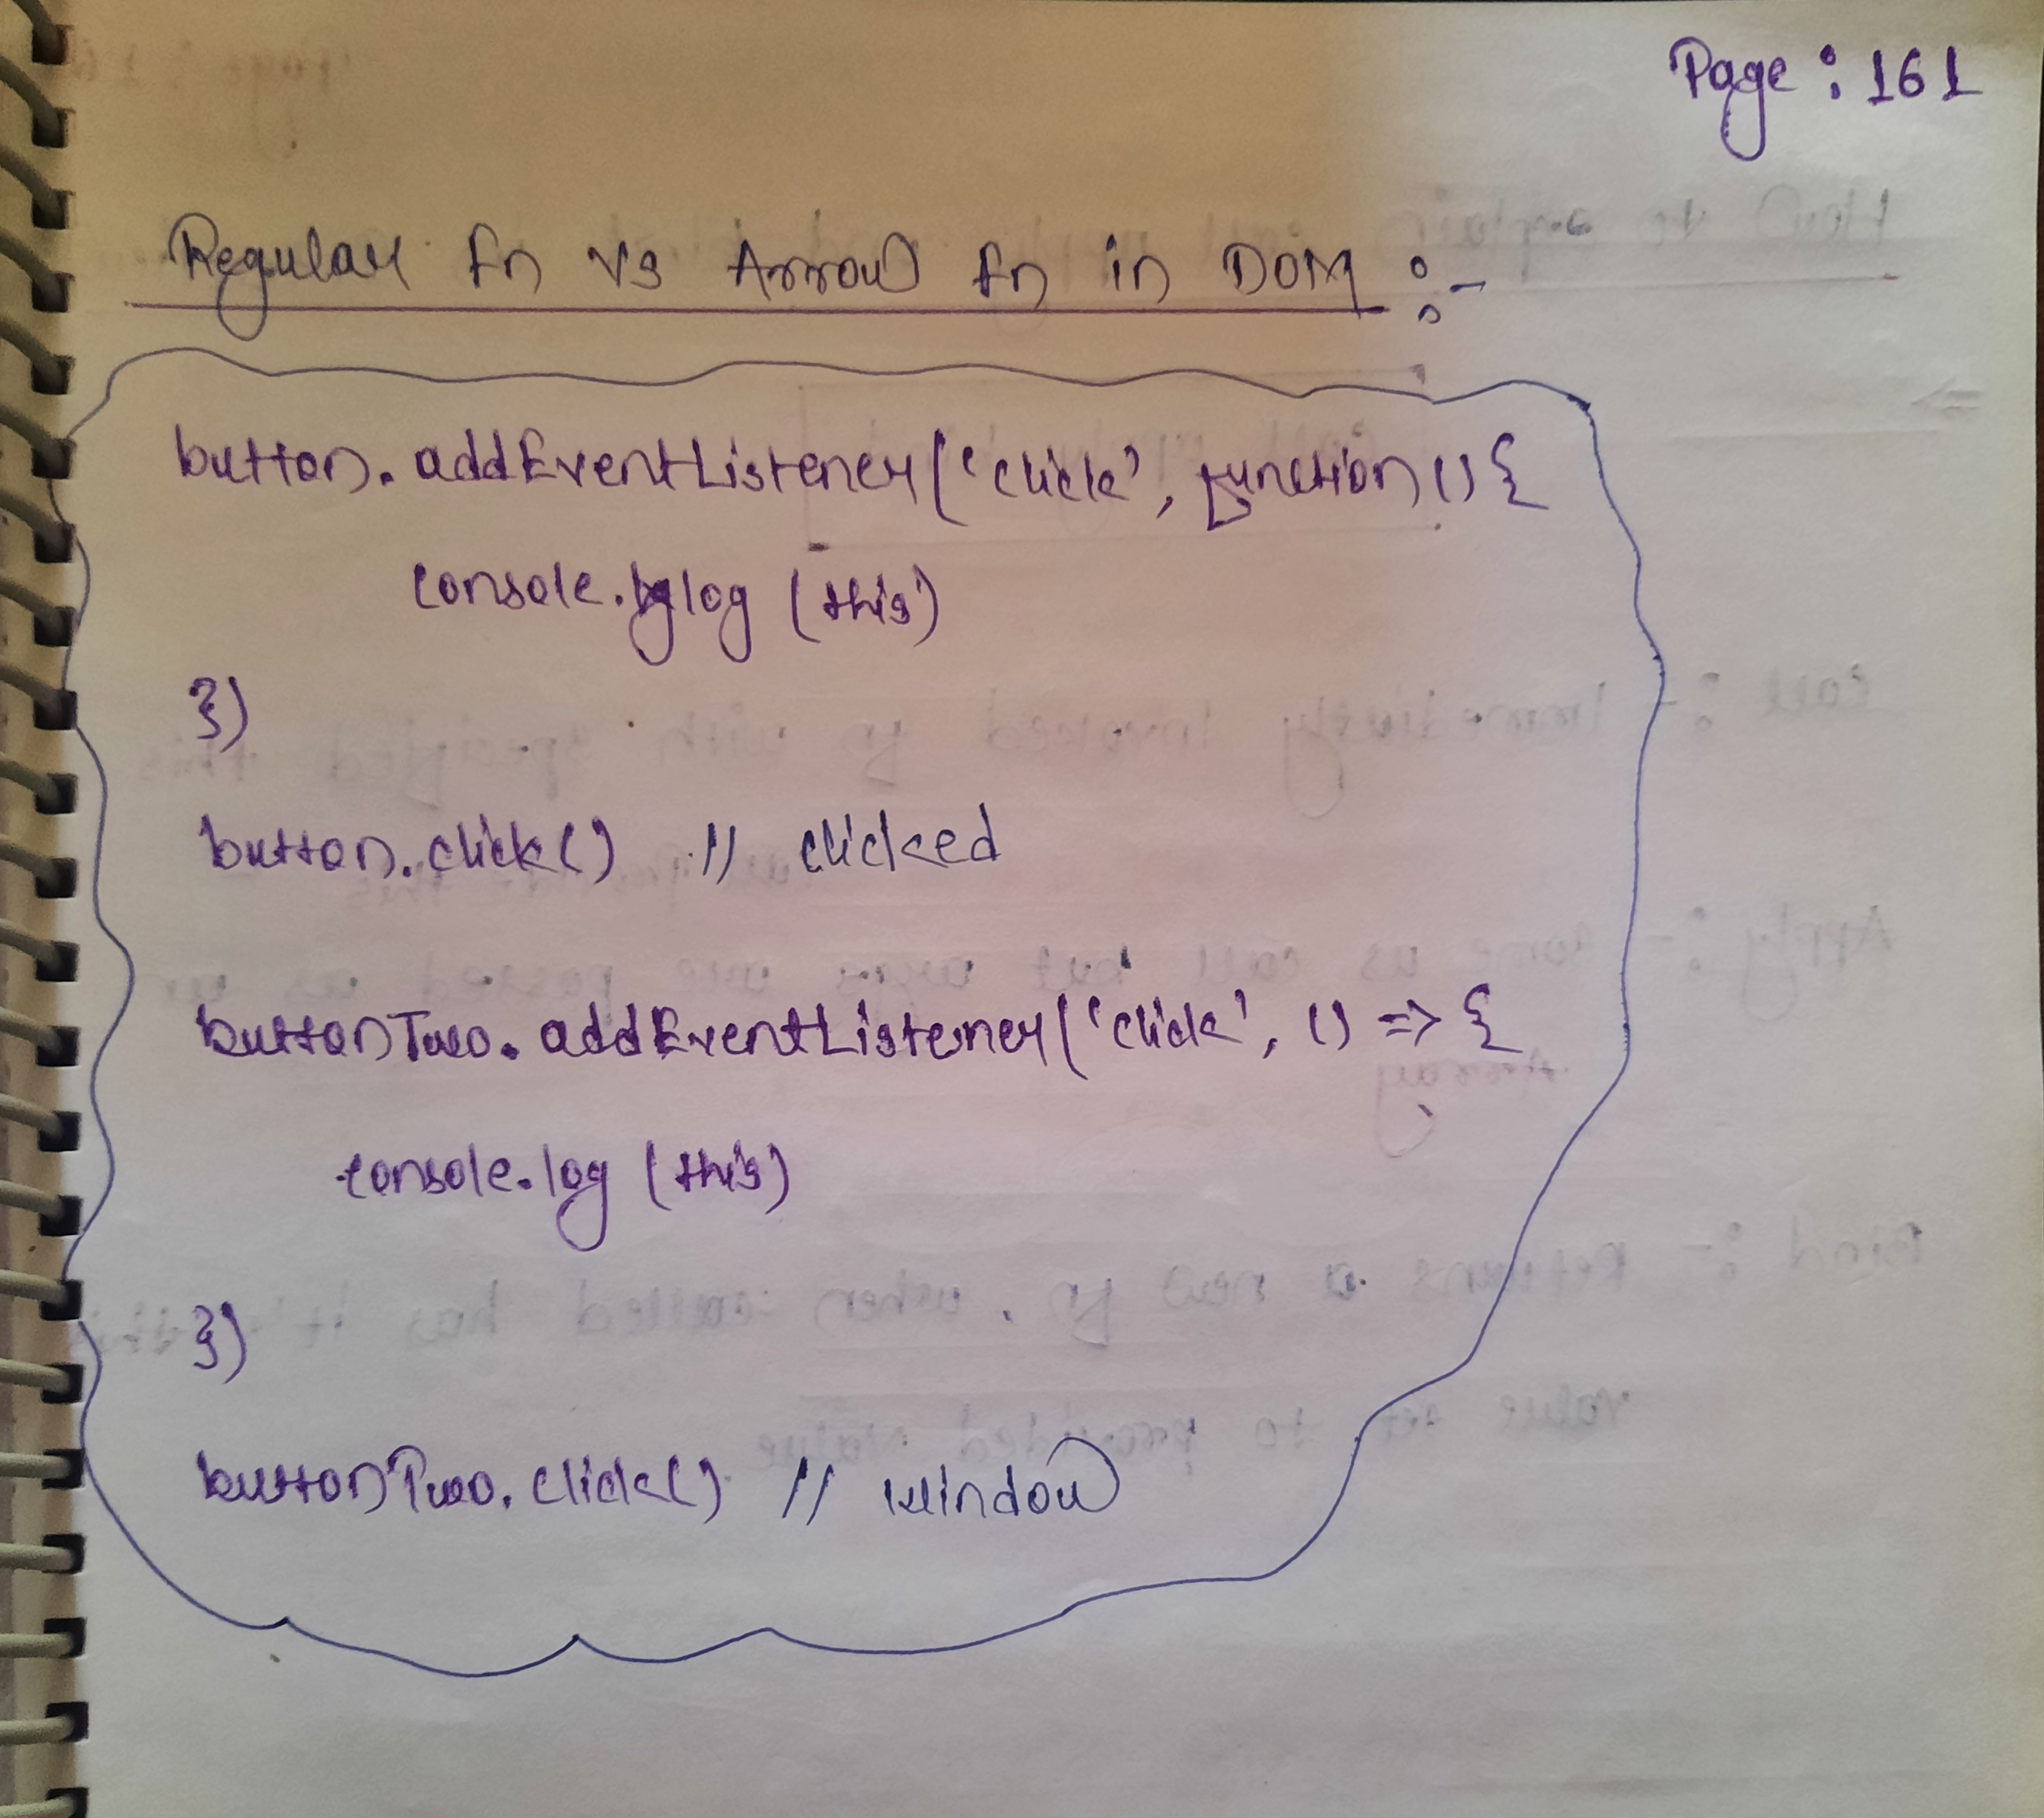 Page : 161
Regular fn vs Arrow fn in DOM :-
button.addEventListener('click', function () {
console.log (this)
})
button.click() // clicked
buttonTwo.addEventListener('click', () => {
console.log (this)
})
buttonTwo.click() // window